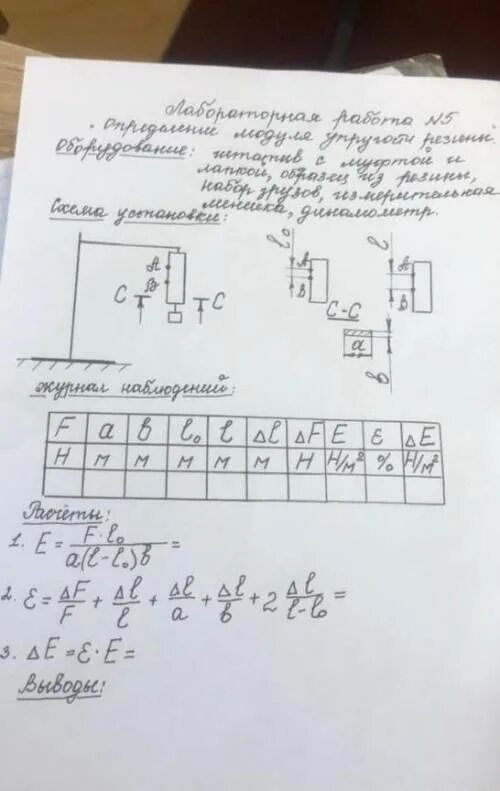 Лабораторная работа №5
Определение модуля упругости резины.
Оборудование: штатив с муфтой и
лапкой, образец из резины,
набор грузов, измерительная
линейка, динамометр.
Схема установки:
A
B
C C
l₀
A
B
l
A
B
C-C
a
в
Журнал наблюдений:
F a в l₀ l Δl ΔF E ε ΔE
Н м м м м м Н Н/м² % Н/м²
Расчёты:
1. E = F·l₀ / a(l-l₀)в =
2. ε = ΔF/F + Δl/l + Δl/a + Δl/в + 2 Δl/l-l₀ =
3. ΔE = ε·E =
Выводы: